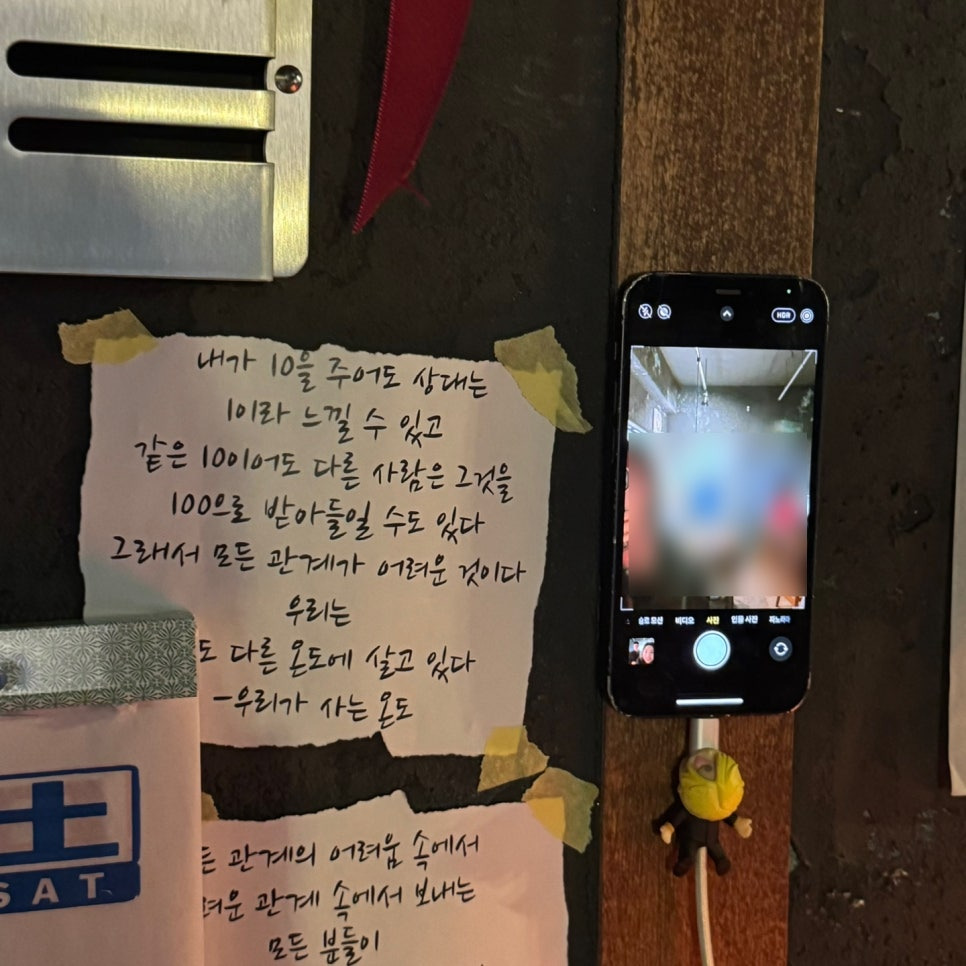 내가 10을 주어도 상대는
1이라 느낄 수 있고
같은 10이어도 다른 사람은 그것을
100으로 받아들일 수도 있다
그래서 모든 관계가 어려운 것이다
우리는
도 다른 온도에 살고 있다
-우리가 사는 온도
관계의 어려움 속에서
관계 속에서 보내는
모든 분들이
土
SAT
HDR
슬로 모션 비디오 사진 인물 사진 파노라마